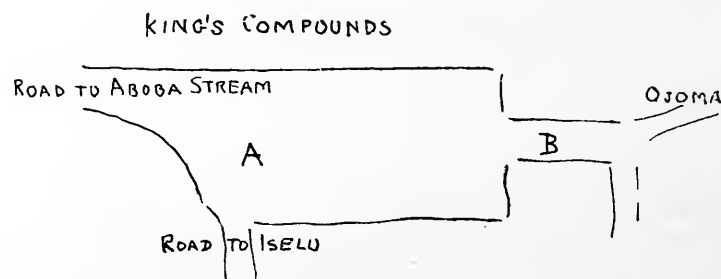 KING'S COMPOUNDS
ROAD TO ABOBA STREAM
OJOMA
A
B
ROAD TO ISELU